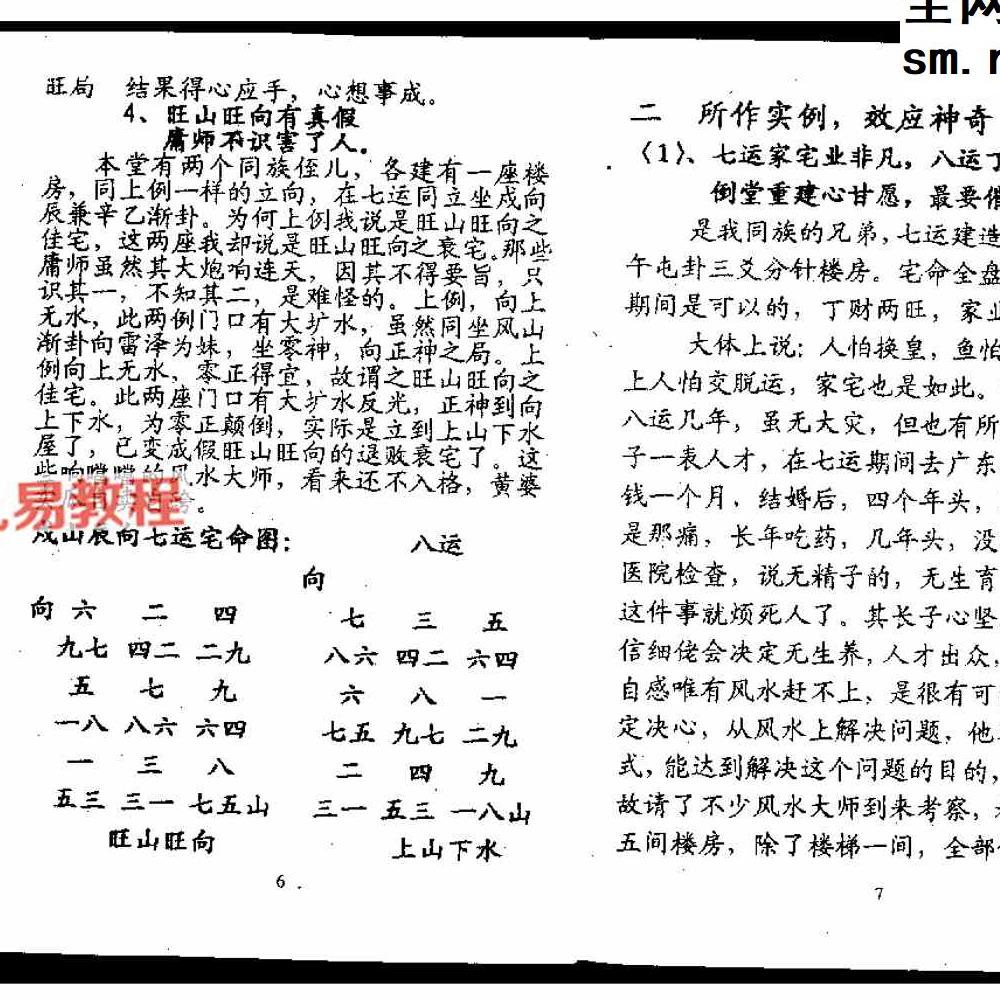 旺局 结果得心应手，心想事成。
4、旺山旺向有真假
庸师不识害了人。
本堂有两个同族侄儿，各建有一座楼
房，同上例一样的立向，在七运同立坐戍向
辰兼辛乙渐卦。为何上例我说是旺山旺向之
佳宅，这两座我却说是旺山旺向之衰宅。那些
庸师虽然其大炮响连天，因其不得要旨，只
识其一，不知其二，是难怪的。上例，向上
无水，此两例门口有大圹水，虽然同坐风山
渐卦向雷泽为妹，坐零神，向正神之局。上
例向上无水，零正得宜，故谓之旺山旺向之
佳宅。此两座门口有大圹水反光，正神到向
上下水，为零正颠倒，实际是立到上山下水
屋了，已变成假旺山旺向的退败衰宅了。这
些响
的风水大师，看来还不入格，黄婆
易教程
戍山辰向七运宅命图：
向 六 二 四
九七 四二 二九
五 七 九
一八 八六 六四
一 三 八
五三 三一 七五山
旺山旺向
八运
向
七 三 五
八六 四二 六四
六 八 一
七五 九七 二九
二 四 九
三一 五三 一八山
上山下水
6
sm.
二 所作实例，效应神奇
（1）、七运家宅业非凡，八运丁
倒堂重建心甘愿，最要
是我同族的兄弟，七运建造
午屯卦三爻分针楼房。宅命全盘
期间是可以的，丁财两旺，家业
大体上说；人怕换皇，鱼怕
上人怕交脱运，家宅也是如此。
八运几年，虽无大灾，但也有所
子一表人才，在七运期间去广东
钱一个月，结婚后，四个年头，
是那痛，长年吃药，几年头，没
医院检查，说无精子的，无生育
这件事就烦死人了。其长子心坚
信细佬会决定无生养，人才出众，
自感唯有风水赶不上，是很有可
定决心，从风水上解决问题，他
式，能达到解决这个问题的目的，
故请了不少风水大师到来考察，
五间楼房，除了楼梯一间，全部
7